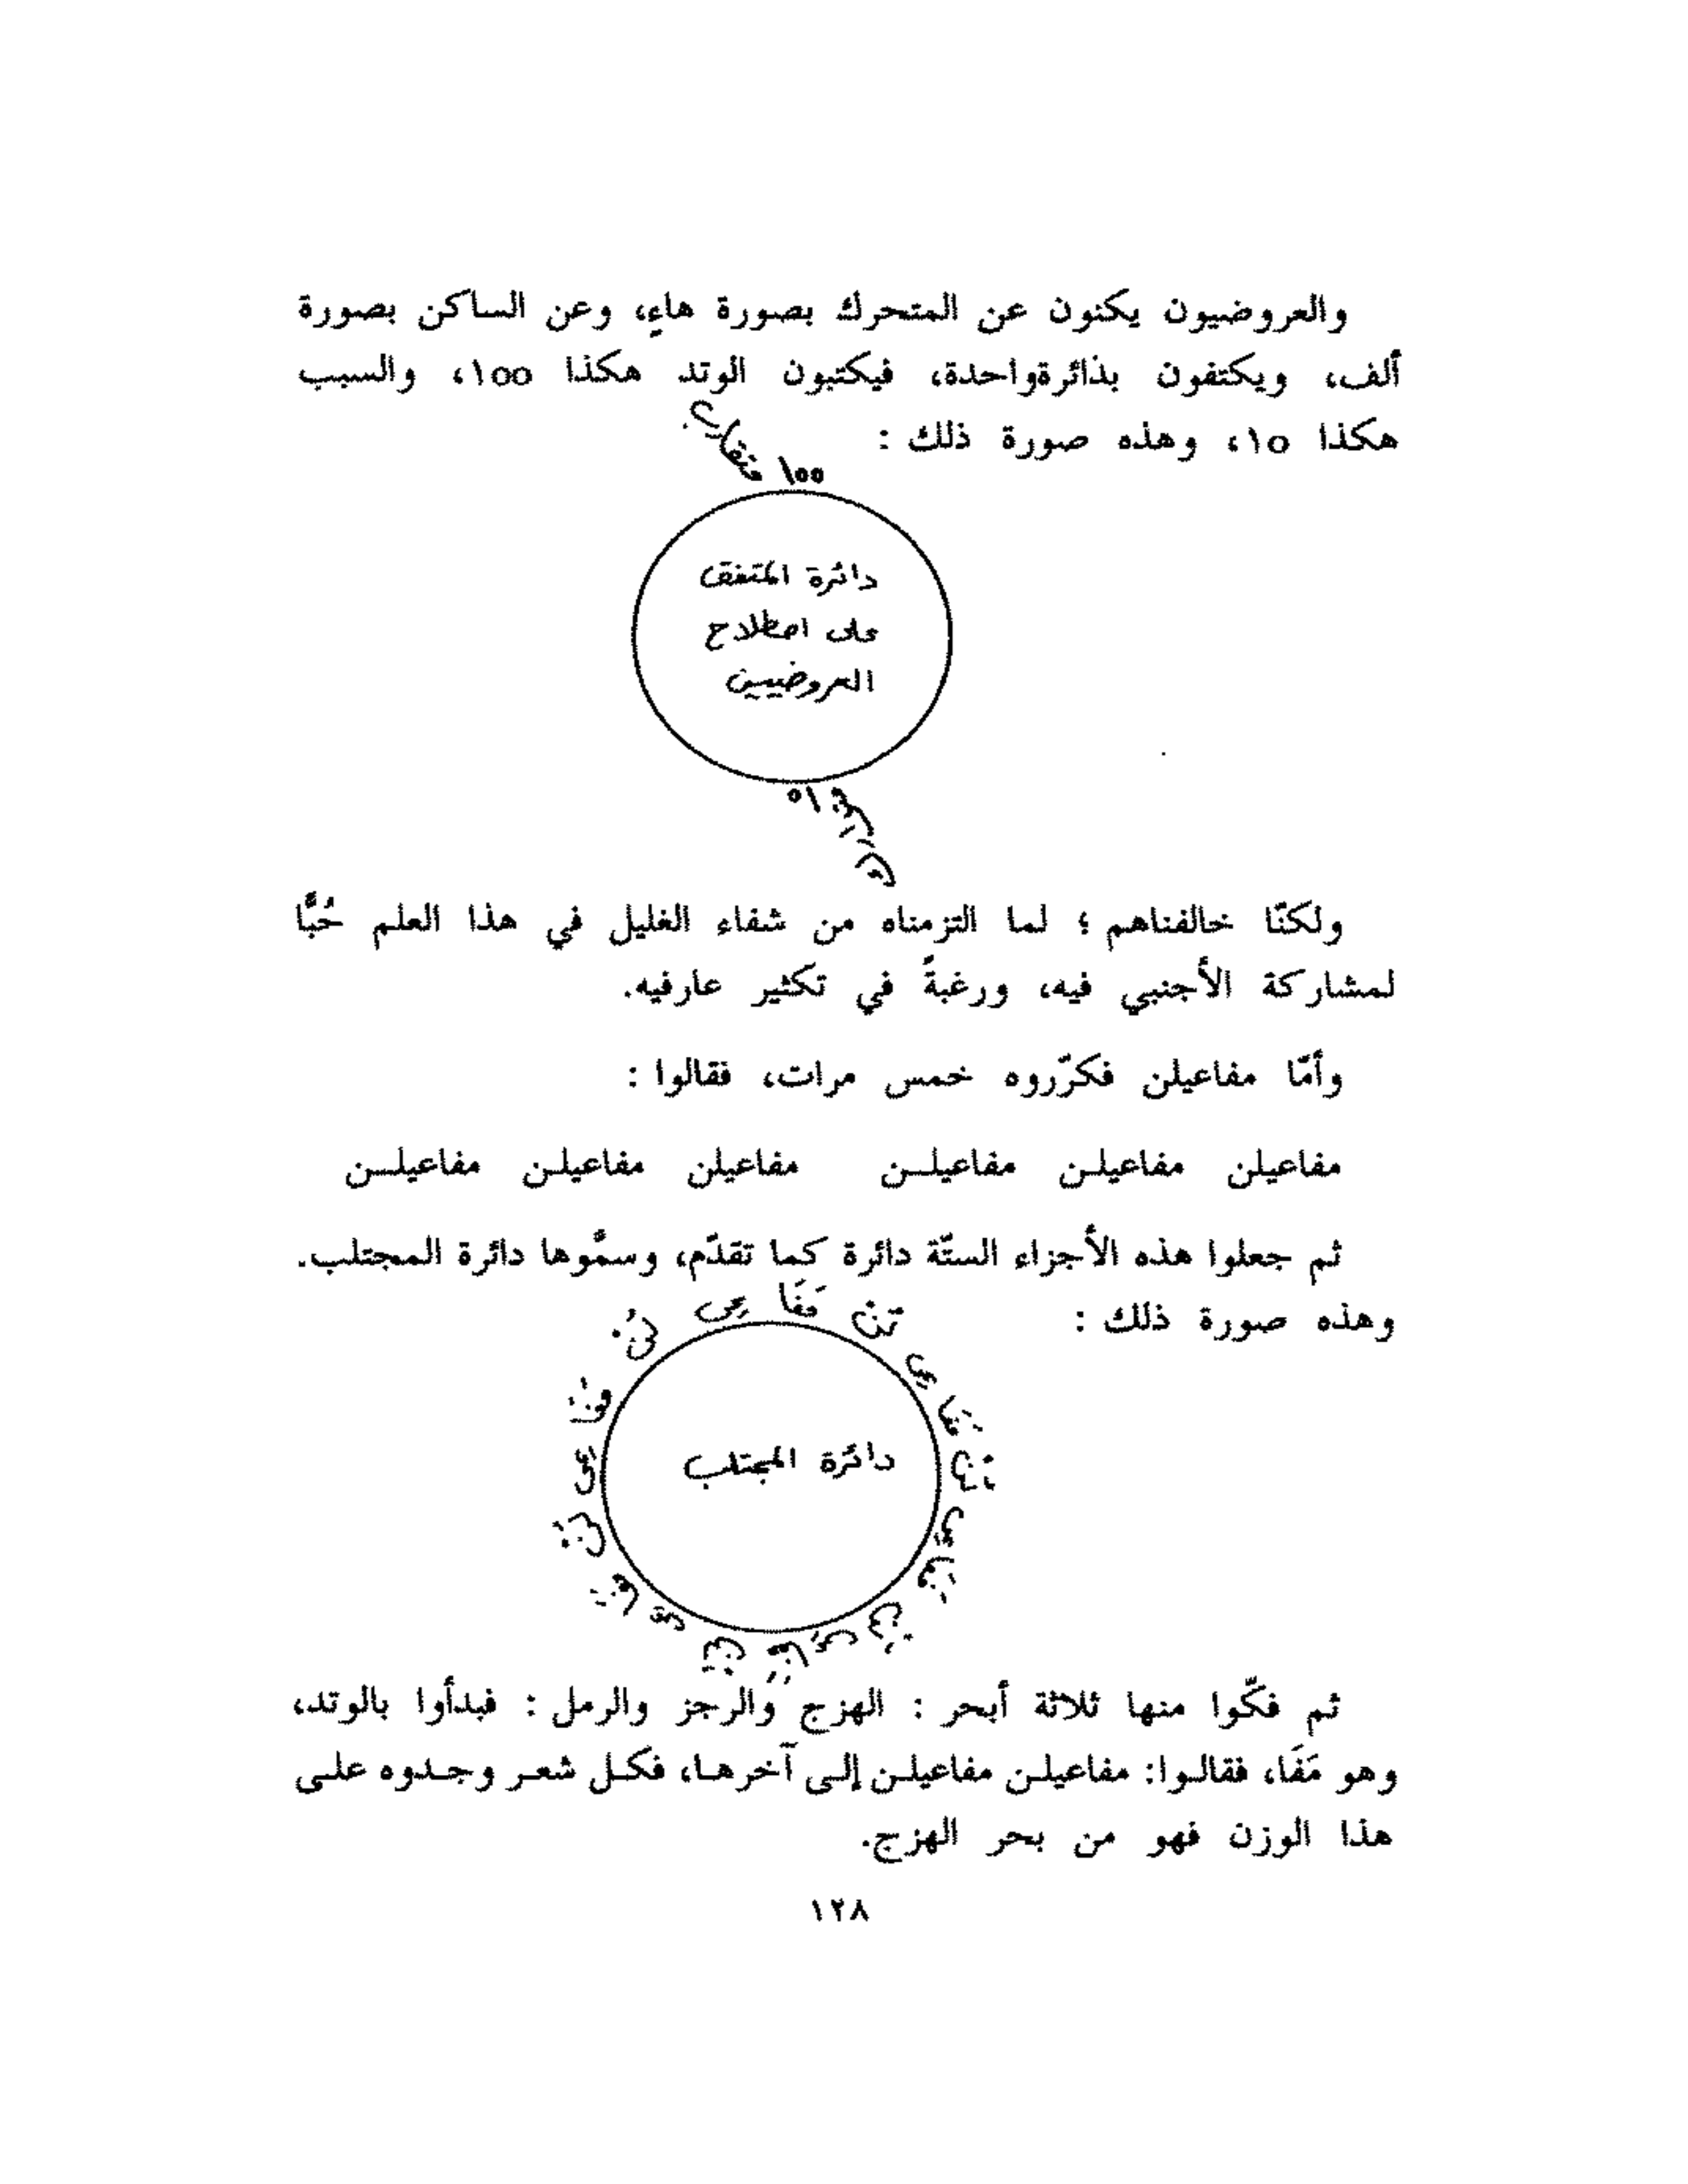 والعروضيون يكنون عن المتحرك بصورة هاءٍ، وعن الساكن بصورة
ألف، ويكتفون بذائرةواحدة، فيكتبون الوتد هكذا ١٥٥، والسبب
هكذا ١٥، وهذه صورة ذلك :
متقارب
١٥٥
دائرة المتفق
على اصطلاح
العروضيين
١٥
ولكنّا خالفناهم ؛ لما التزمناه من شفاء الغليل في هذا العلم حُبًّا
لمشاركة الأجنبي فيه، ورغبةً في تكثير عارفيه.
وأمّا مفاعيلن فكرّروه خمس مرات، فقالوا :
مفاعيلن مفاعيلـن مفاعيلــن مفاعيلن مفاعيلـن مفاعيلــن
ثم جعلوا هذه الأجزاء الستّة دائرة كما تقدّم، وسمَّوها دائرة المجتلب.
وهذه صورة ذلك :
مَفَا عِى لُنْ مَفَا عِى لُنْ مَفَا عِى لُنْ مَفَا عِى لُنْ مَفَا عِى لُنْ مَفَا عِى لُنْ
دائرة المجتلب
ثم فكّوا منها ثلاثة أبحر : الهزج والرجز والرمل : فبدأوا بالوتد،
وهو مَفَا، فقالـوا: مفاعيلـن مفاعيلـن إلـى آخرهـا، فكـل شعـر وجـدوه علـى
هذا الوزن فهو من بحر الهزج.
١٢٨